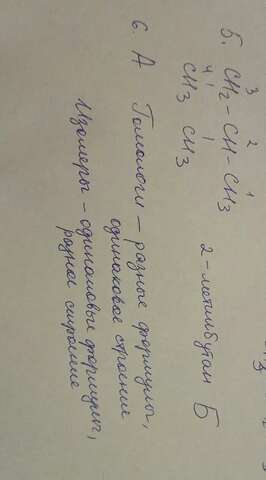 3 2 1
5. CH2 - CH - CH3
4
CH3 CH3
2-метилбутан Б
6. А Гомологи – разные формулы,
одинаковое строение
Изомеры – одинаковые формулы,
разное строение